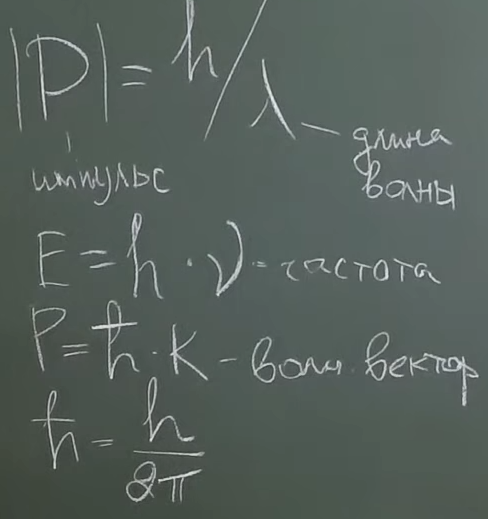 |P| = h/λ – длина волны
импульс
E = h · ν - частота
P = ħ · K – волн. вектор
ħ = h/2π